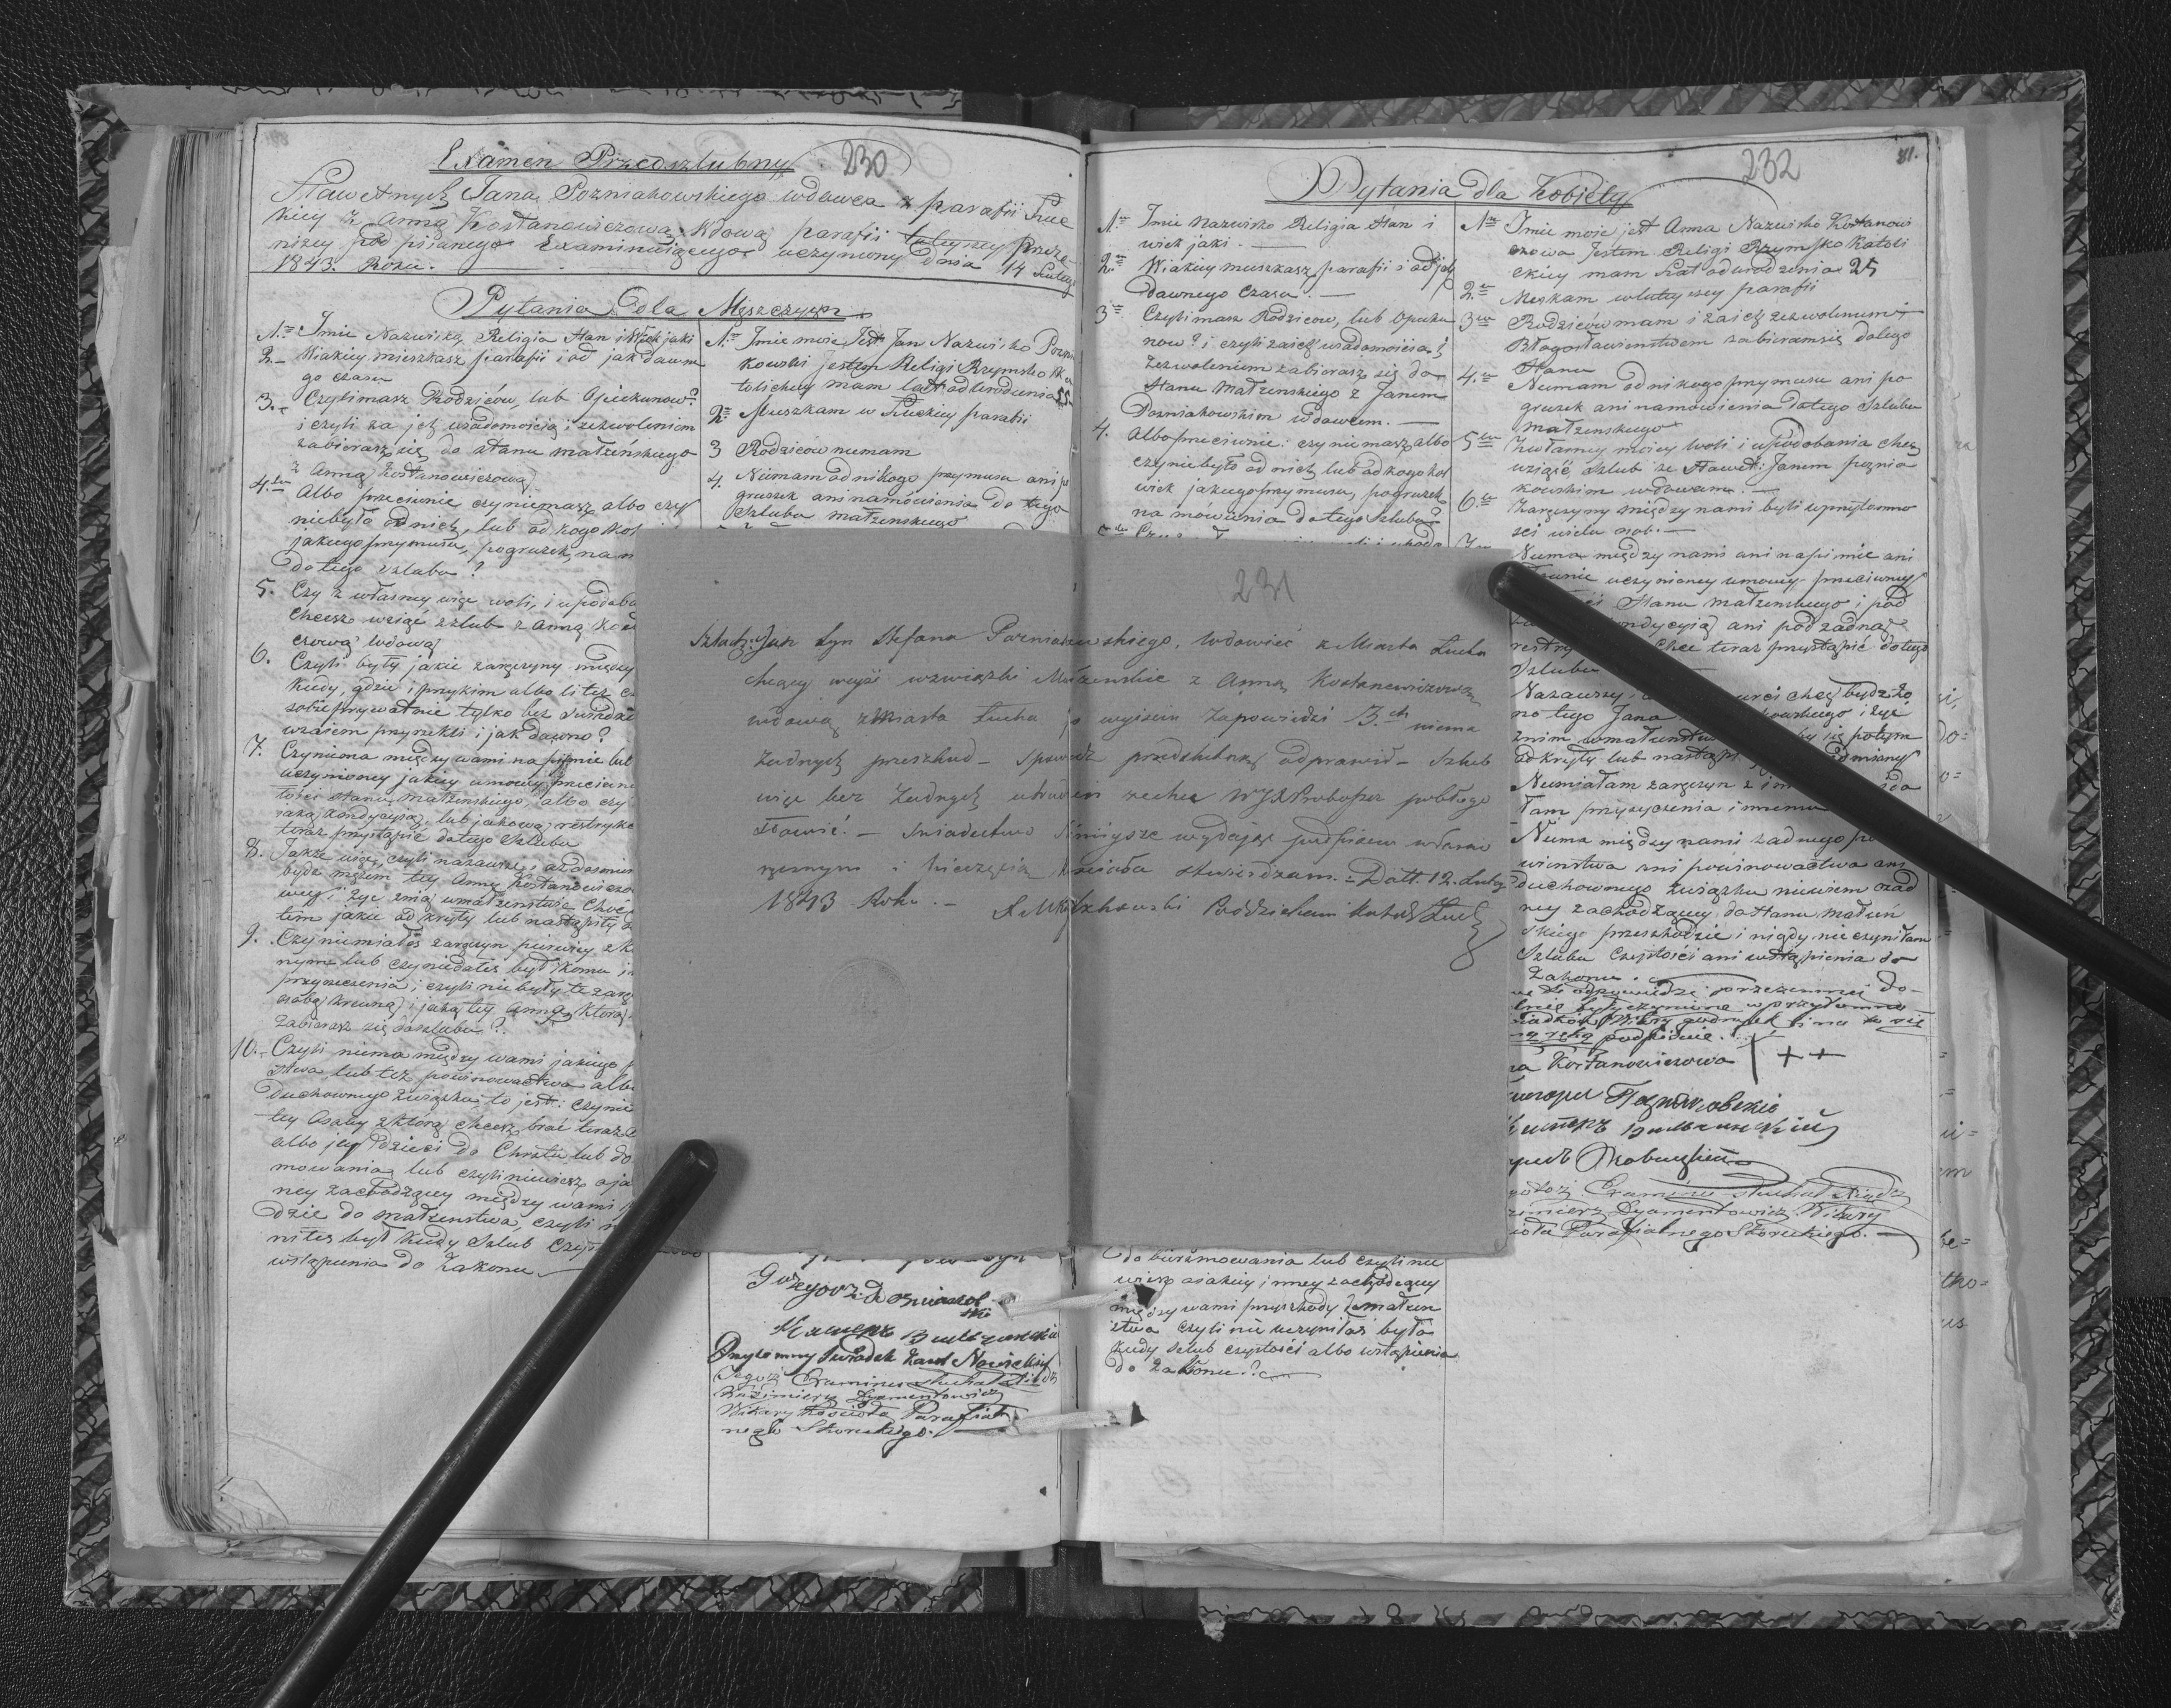 Examen Przedszlubny
230
Sławetnych Jana Pozniakowskiego wdowca z parafii Łuc
kiey z Anną Kostanowiczową Wdową parafii tuteyszey przeze
niżey pod pisanego Examinuiącego uczyniony dnia 14 Lutego
1843 Roku.
Pytania Dla Męszczyzn
1. Imie Nazwisko Religia Stan i Wiek jaki
2. Wiakiey mieszkasz parafii i od jak dawne
go czasu
3. Czyli masz Rodziców, lub Opiekunow?
i czyli za jch wiadomością i zezwoleniem
zabierasz się do stanu małżeńskiego
z Anną Kostanowiczową
4. Albo przeciwnie czy niemasz albo czy
niebyło od nich, lub od kogo kol
jakiego przymusu, pogruzek, na
do tego szlubu?
5. Czy z własney więc woli, i upodoba
chcesz wziąść szlub z Anną Kos
czową wdową
6. Czyli były jakie zaręczyny między
kiedy, gdzie i przykim albo li też
sobie prywatnie tylko bez świadk
wzaiem przyrzekli i jak dawno?
7. Czyniema między wami na piśmie lub
uczynioney jakiey umowy przeciwn
tości stanu małżenskiego, albo czy
iaką kondycyją, lub jakową restrykc
teraz przystąpić dotego szlubu
8. Także więc, czyli nazawsze i aż do smier
bydz mężem tey Anny Kostanowiczo
wey i żyć znią wmałżenstwie choć
tem jakie od kryły lub nastąpiły
9. Czy niemiałes zaręczyn pierwiey z
nym lub czy niedałes był komu
przyrzeczenia i czyli nie były te zarę
osobą krewną jaką tey Anny, którą
zabierasz się do szlubu?
10. Czyli niema między wami jakiego
stwa, lub też powinowactwa alb
Duchownego związku to jest: czynie
tey Osoby z którą chcesz brać teraz
albo jey Dzieci do Chrztu lub do
mowania, lub czyli niewiesz o ja
ney zachodzącey między wami
dzie do małżenstwa, czyli
niłes był kiedy szlub Czys
wstąpienia do Zakonu
1. Imie moie Jest Jan Nazwisko Pozni
kowski jestem Religi Rzymsko Ka
tolickiey mam lat od urodzenia 55
2. Mieszkam w Łuckiey parafii
3 Rodziców niemam
4. Niemam od nikogo przymusu ani po
gruzek ani namówienia do tego
szlubu małżenskiego
Przytomny Swiadek Karol Nowicki
Tegoż Examinu słuchał Xiądz
Kazimierz Dyamentowicz
Wikary Kościoła Parafial
nego
231
Szlach: Jan Syn Stefana Pozniakowskiego, wdowiec z Miasta Łucka
chcący wejść wzwiązki Małżenskie z Anną Kostanowiczową
wdową z Miasta Łucka po wyiściu Zapowiedzi 3ch niema
żadnych przeszkod – spowiedz przedslubną odprawił – Szlub
więc bez żadnych utrudnien zechce WJX Proboszcz pobłogo
sławić. – Swiadectwo niniejsze wydając podpisem własno
ręcznym i pieczęcią Kościoła stwierdzam. – Datt. 12. Lutego
1843 Roku. –
232
81.
Pytania dla Kobiéty
1. Imie Nazwisko Religia Stan i
wiek jaki. —
2. Wiakiey mieszkasz parafii i od jak
dawnego czasu. —
3 Czyli masz Rodzicow, lub Opieku
now? i czyli zaich wiadomością i
zezwoleniem zabierasz się do
stanu Małżenskiego z Janem
Pozniakowskim wdowcem. —
4. Albo przeciwnie: czy niemasz albo
czy niebyło od nich lub od kogo kol
wiek jakiego przymusu, pogruzek
na mówienia do tego szlubu?
do bierzmowania lub czyli nie
wiesz oiakiey inney zachodzącey
między wami przeszkody do małżen
stwa czyli nie uczyniłaś była
kiedy szlub czystości albo wstąpienia
do Zakonu?
1. Imie moie jest Anna Nazwisko Kostanowi
czowa Jestem Religi Rzymsko Katoli
ckiey mam Lat od urodzenia 25
2. Meszkam wtuteyszey parafii
3 Rodziców mam i zaich zezwoleniem i
Błogosławieństwem zabieramsię dotego
Stanu
4. Niemam od nikogo przymusu ani po
gruzek ani namowienia dotego szlubu
małżenskiego
5 Zwłasney moiey woli i upodobania chcę
wziąść szlub ze Sławet: Janem poznia
kowskim wdowcem. —
6. Zaręczyny między nami byli wprzytomno
sci wielu osób. —
Niema między nami ani napismie ani
uczynioney umowy przeciwney
Stanu małżenskiego i pod
kondycyią ani pod żadną
restry chce teraz przystąpić dotego
szlubu
Nazawsze chcę bydz żo
no tego Jana kowskiego i żyć
znim wmałżenstwie by się potym
odkryły lub nastąpi
Niemiałam zaręczyn z i
łam przyrzeczenia innemu
Niema między nami żadnego po
wienstwa ani powinowactwa ani
duchownego związku niewiem o żad
ney zachodzącey do stanu małżeń
skiego przeszkodzie i nigdy nie czyniłam
Szlubu Czystości ani wstąpienia do
Zakonu.
podpisuie.
Kostanowiczowa + +
Examinu słuchał Xiądz
Dyamentowicz Wikary
Parafialnego